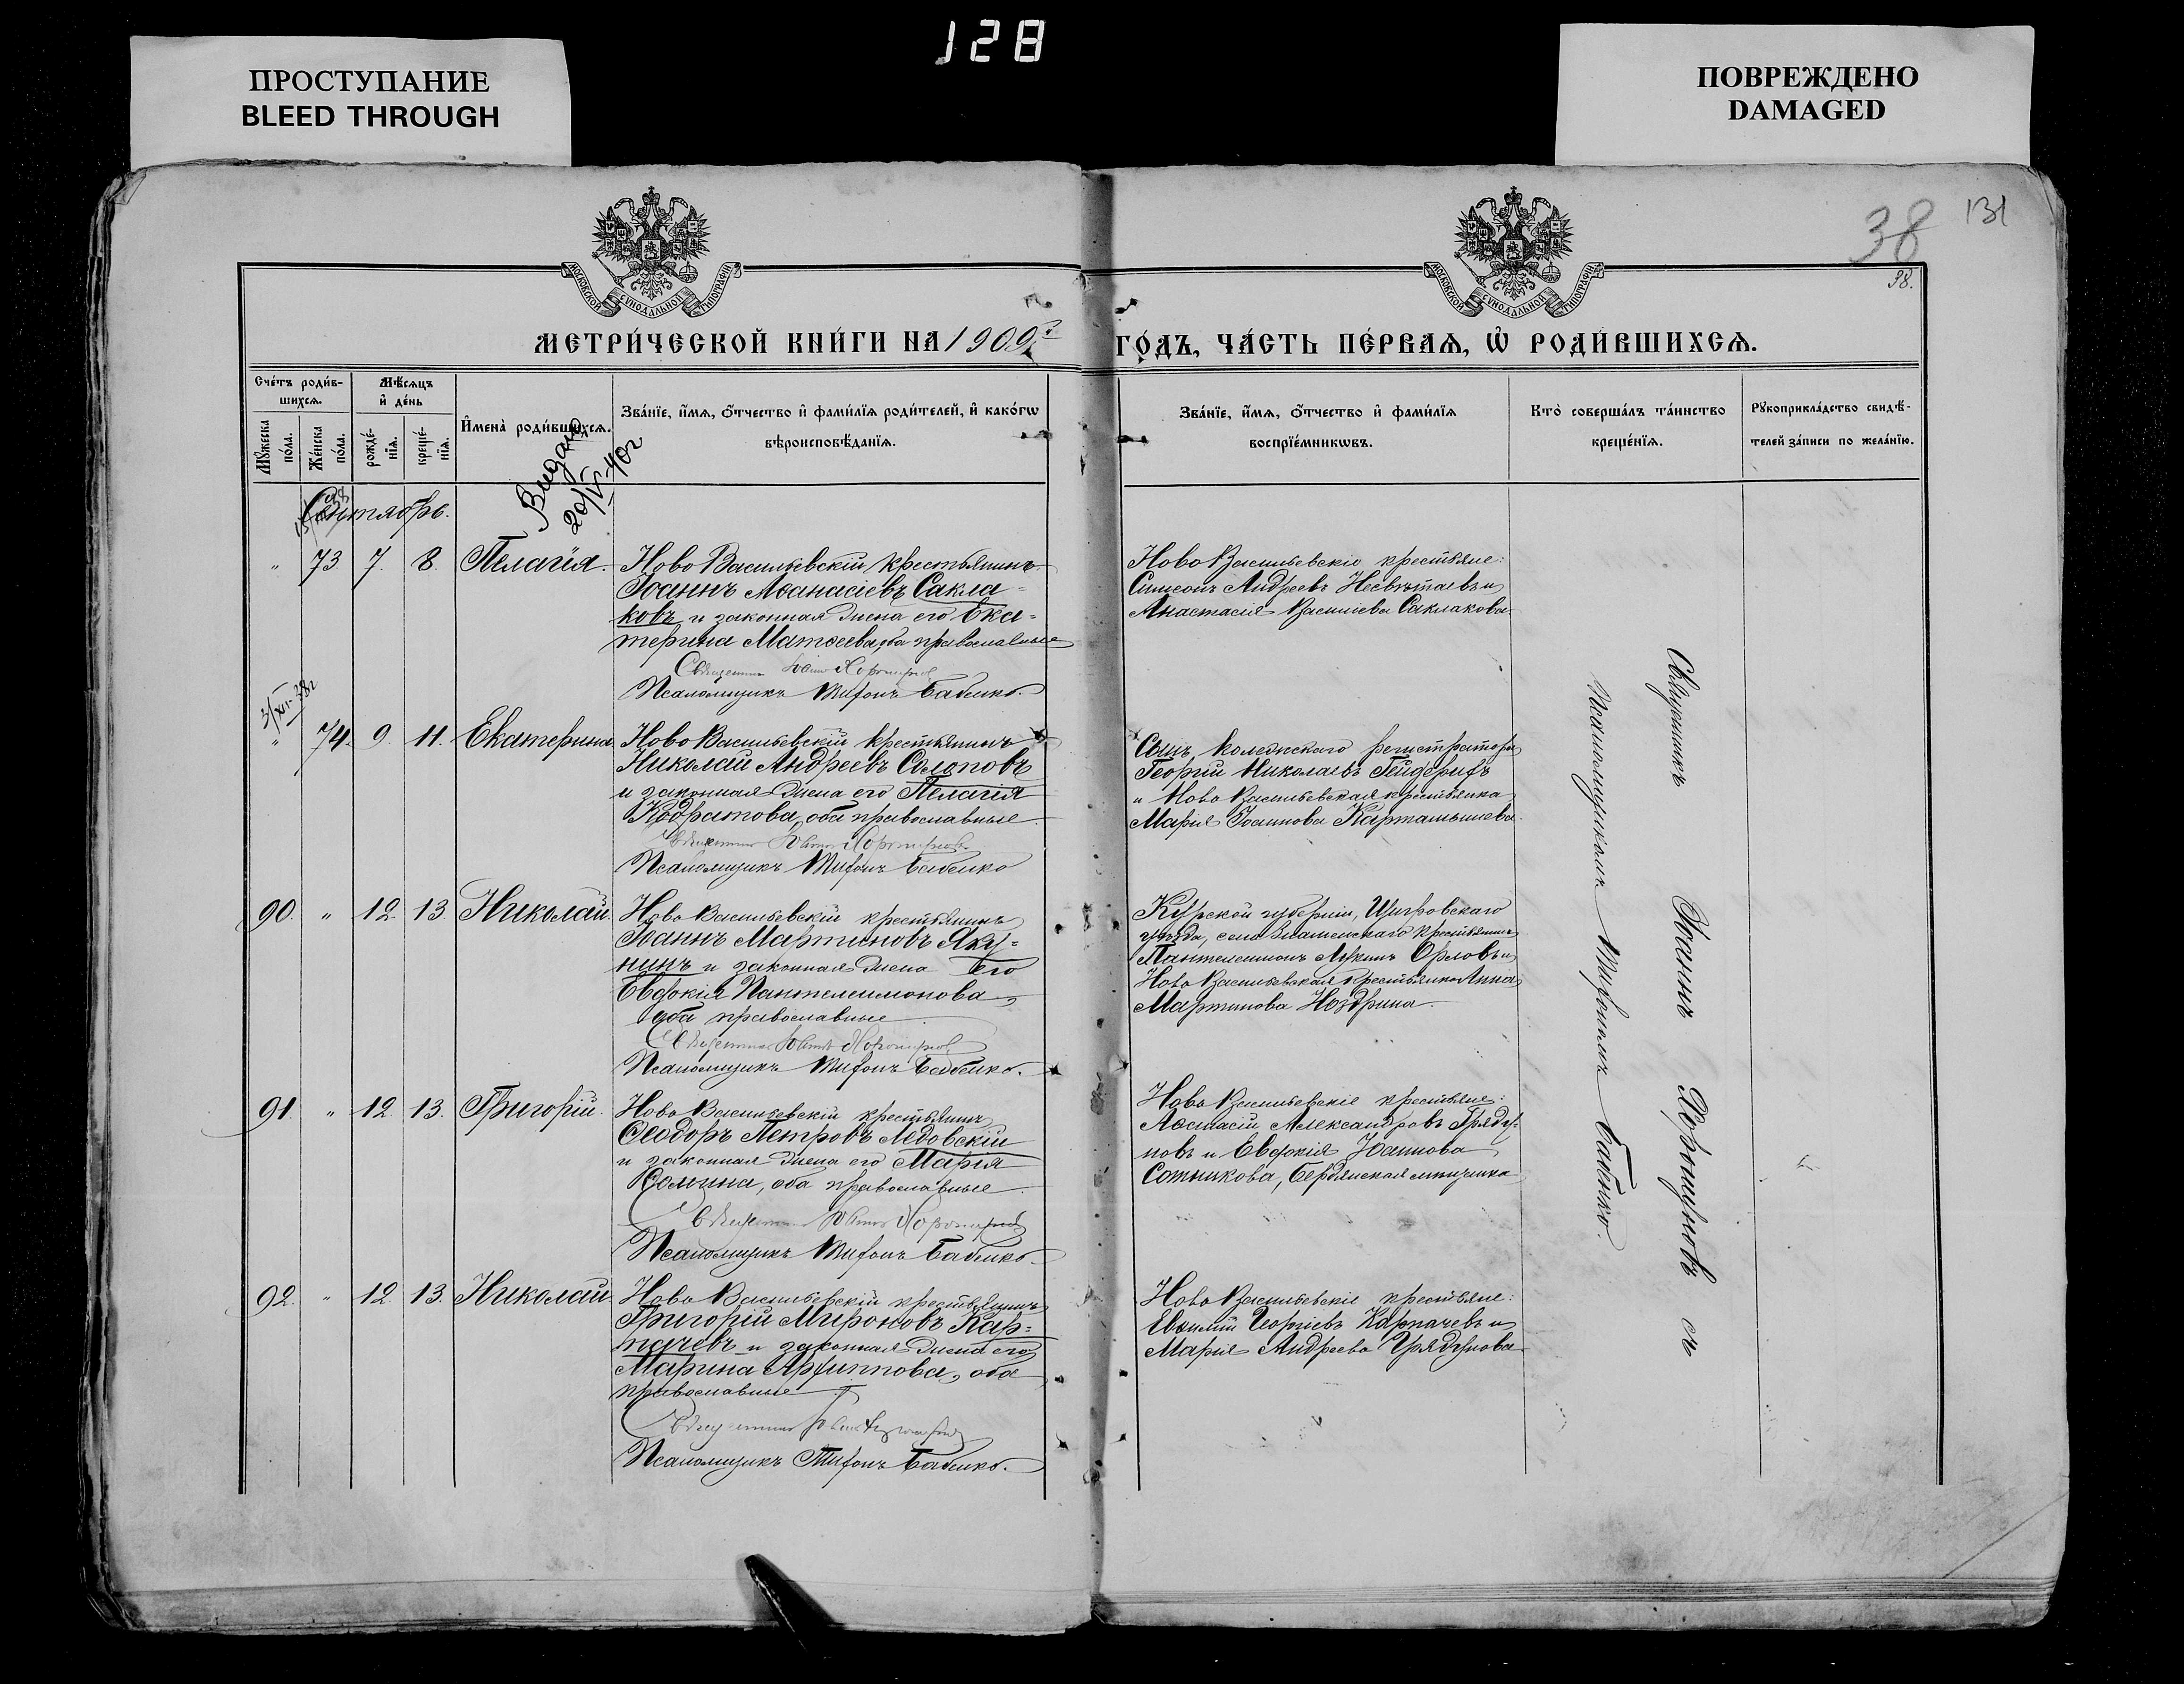 128
ПРОСТУПАНИЕ
BLEED THROUGH
ПОВРЕЖДЕНО
DAMAGED
38 131
38.
МОСКОВСКОЙ СУНОДАЛЬНОЙ ТИПОГРАФІИ
МОСКОВСКОЙ СУНОДАЛЬНОЙ ТИПОГРАФІИ
МЕТРИ́ЧЕСКОЙ КНИ́ГИ НА 1909 ГО́ДЪ, ЧА́СТЬ ПЕ́РВАѦ, Ѡ҆ РОДИ́ВШИХСѦ.
Сче́тъ роди́в-
шихсѧ.
Мꙋ́жеска по́ла.
Же́нска по́ла.
Мѣ́сѧцъ
и҆ де́нь
рожде́-
нїѧ.
креще́-
нїѧ.
И҆мена̀ роди́вшихсѧ.
Зва́нїе, и҆́мѧ, ѻ҆́тчество и҆ фами́лїѧ роди́телей, и҆ како́гѡ
вѣроисповѣ́данїѧ.
Зва́нїе, и҆́мѧ, ѻ҆́тчество и҆ фами́лїѧ
воспрїе́мникѡвъ.
Кто̀ соверша́лъ та́инство
креще́нїѧ.
Рꙋкоприкла́дство свидѣ́-
телей за́писи по жела́нїю.
Видано
20/V-40г
Сентябрь.
" 73 7. 8. Пелагія.
Ново Васильевскій крестьянинъ
Іоаннъ Аѳанасіевъ Сакла-
ковъ и законная жена его Ека-
терина Матѳеева, оба православные
Священник Іоанн Хорошунов
Псаломщикъ Тифонъ Бабенко.
Ново Васильевскіе крестьяне:
Симеонъ Андреевъ Несвѣтаевъ и
Анастасія Василіева Саклакова
3/XII-38г
" 74. 9. 11. Екатерина
Ново Васильевскій крестьянинъ
Николай Андреевъ Солоповъ
и законная жена его Пелагія
Кодратова, оба православные
Священник Іоанн Хорошунов
Псаломщикъ Тифонъ Бабенко
Сынъ колежскаго регистратора
Георгій Николаевъ Гейдерихъ
и Ново Васильевская крестьянка
Марія Іоаннова Картамышева.
90. " 12. 13. Николай.
Ново Васильевскій крестьянинъ
Іоаннъ Мартиновъ Яку-
нинъ и законная жена его
Евдокія Пантелеимонова,
оба православные
Священник Іоанн Хорошунов
Псаломщикъ Тифонъ Бабенко.
Курской губерніи, Щигровскаго
уѣзда, села Знаменскаго крестьянинъ
Пантелеимонъ Лукинъ Орловъ и
Ново Васильевская крестьянка Анна
Мартинова Ноздрина
91. " 12 13. Григорій.
Ново Васильевскій крестьянинъ
Ѳеодоръ Петровъ Ледовскій
и законная жена его Марія
Козмина, оба православные
Священник Іоанн Хорошунов
Псаломщикъ Тифонъ Бабенко
Ново Васильевскіе крестьяне:
Александровъ Гряду-
новъ и Евдокія Іоаннова
Сотникова, Бердянская мещанка
92. " 12 13. Николай
Ново Васильевскій крестьянинъ
Григорій Мироновъ Кар-
пачевъ и законная жена его
Марина Архиппова, оба
православные
Священник Іоанн Хорошунов
Псаломщикъ Тифонъ Бабенко.
Ново Васильевскіе крестьяне:
Евѳимій Георгіевъ Карпачевъ и
Марія Андреева Грядунова
Священникъ Іоаннъ Хорошуновъ съ
Псаломщикомъ Тифономъ Бабенко.